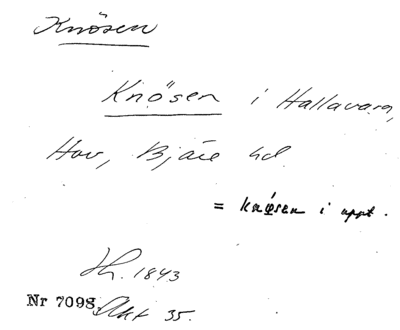 Knösen
Knösen i Hallavara,
Hov, Bjäre hd
= knøsen i uppt.
Hh. 1843
Nr 7098 Akt 35.